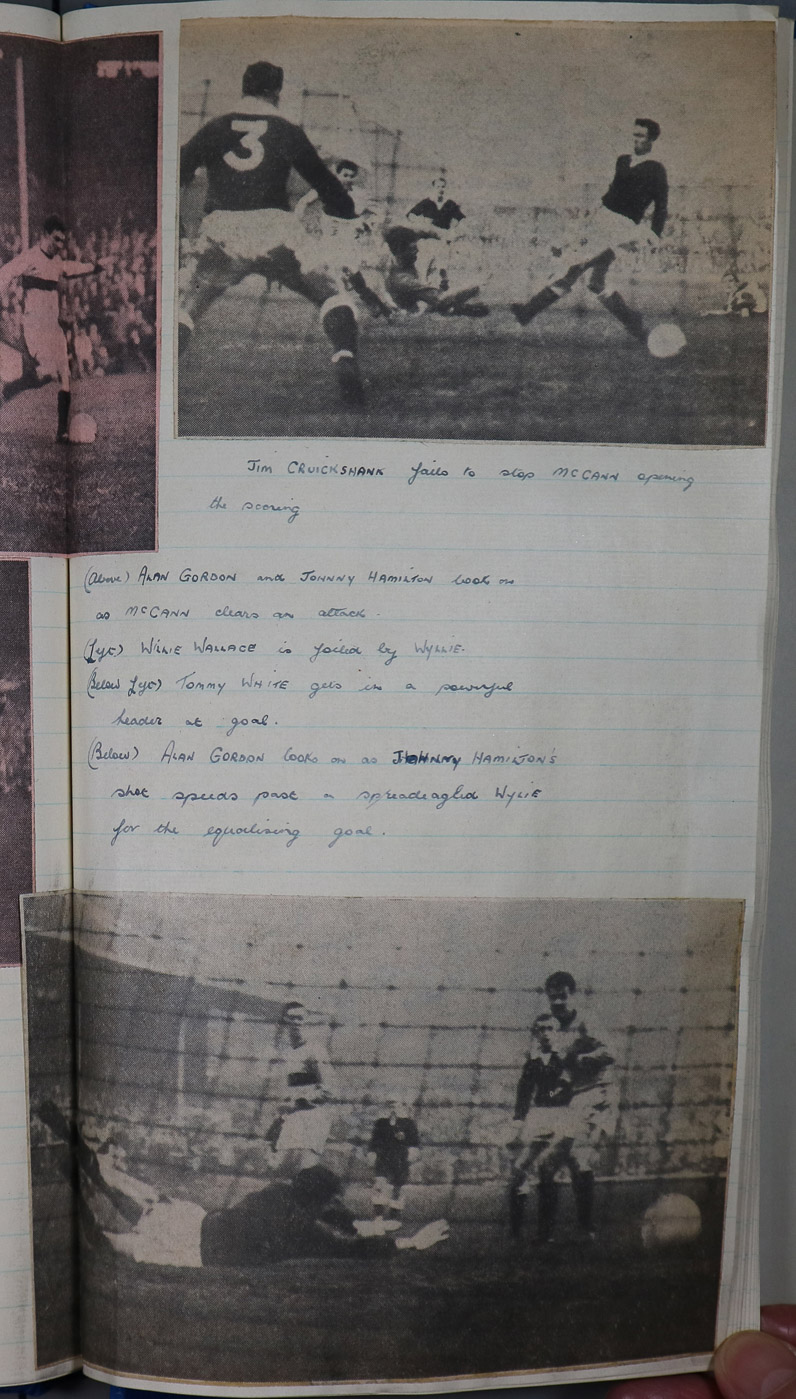 3
JIM CRUICKSHANK fails to stop MCCANN opening
the scoring
(Above) ALAN GORDON and JOHNNY HAMILTON look on
as MCCANN clears an attack.
(Left) WILLIE WALLACE is foiled by WYLLIE.
(Below left) TOMMY WHITE gets in a powerful
header at goal.
(Below) ALAN GORDON looks on as JOHNNY HAMILTON'S
shot speeds past a spreadeagled WYLIE
for the equalising goal.